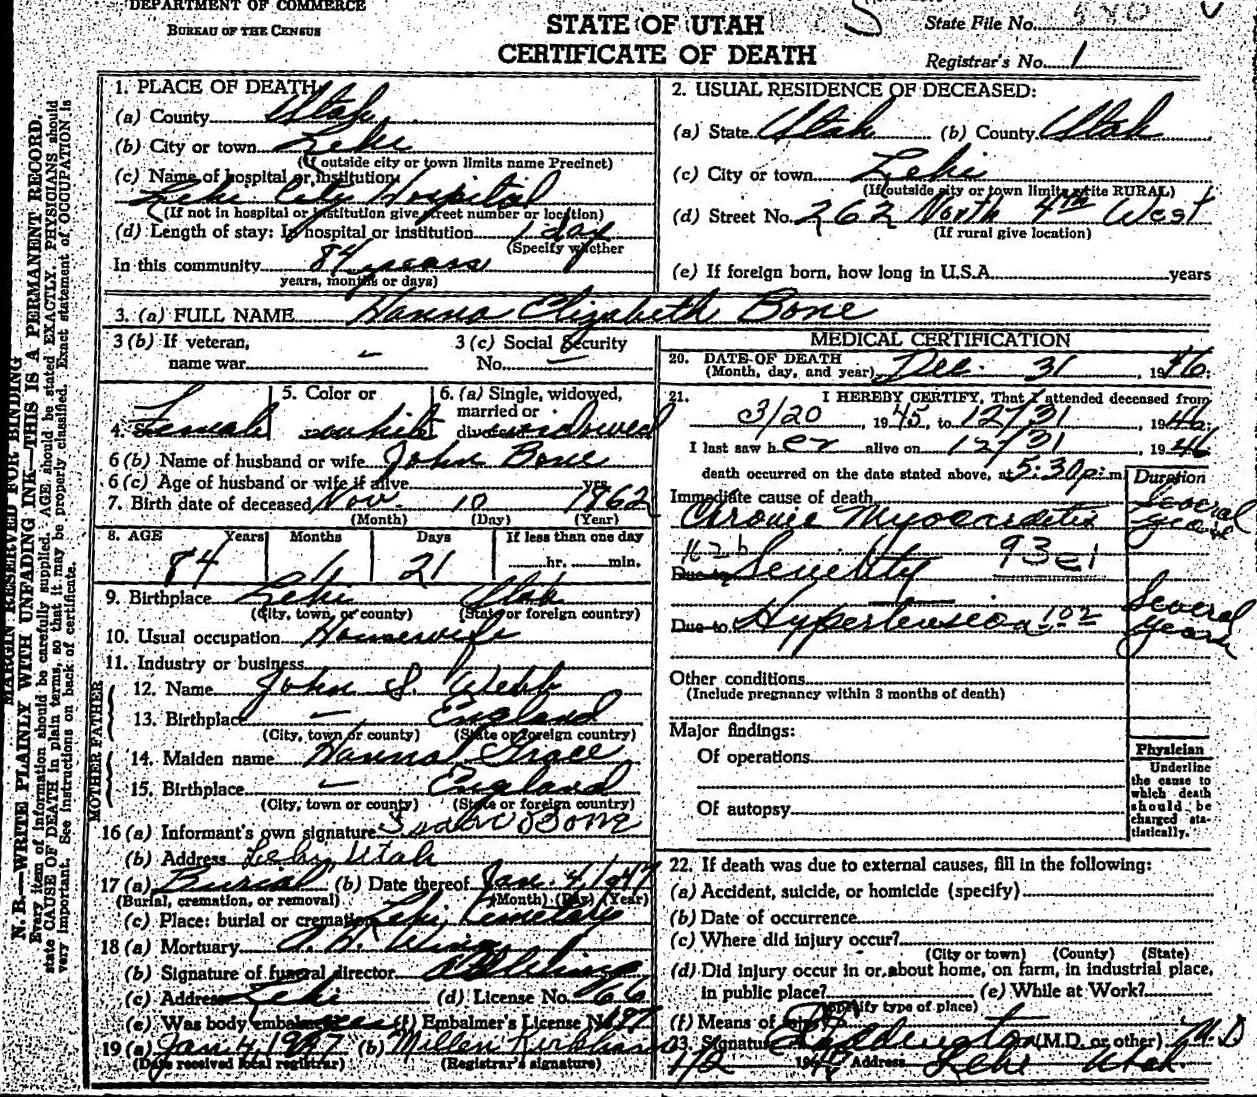 DEPARTMENT OF COMMERCE
BUREAU OF THE CENSUS
STATE OF UTAH
CERTIFICATE OF DEATH
State File No.
Registrar's No. 1
MARGIN RESERVED FOR BINDING
N. B.—WRITE PLAINLY WITH UNFADING INK—THIS IS A PERMANENT RECORD.
Every item of information should be carefully supplied. AGE should be stated EXACTLY. PHYSICIANS should
state CAUSE OF DEATH in plain terms, so that it may be properly classified. Exact statement of OCCUPATION is
very important. See instructions on back of certificate.
1. PLACE OF DEATH:
(a) County Utah
(b) City or town Lehi
(If outside city or town limits name Precinct)
(c) Name of hospital or institution:
Lehi City Hospital
(If not in hospital or institution give street number or location)
(d) Length of stay: In hospital or institution 1 day
(Specify whether
In this community 84 years
years, months or days)
2. USUAL RESIDENCE OF DECEASED:
(a) State Utah (b) County Utah
(c) City or town Lehi
(If outside city or town limits write RURAL)
(d) Street No. 262 North 4th West
(If rural give location)
(e) If foreign born, how long in U.S.A. years
3. (a) FULL NAME Hanna Elizabeth Bone
3 (b) If veteran,
name war –
3 (c) Social Security
No. –
4. Sex Female
5. Color or
race white
6. (a) Single, widowed,
married or
divorced widowed
6 (b) Name of husband or wife John Bone
6 (c) Age of husband or wife if alive yrs
7. Birth date of deceased Nov. 10 1862
(Month) (Day) (Year)
8. AGE Years Months Days If less than one day
84 1 21 hr. min.
9. Birthplace Lehi Utah
(City, town, or county) (State or foreign country)
10. Usual occupation Housewife
11. Industry or business
FATHER
12. Name John S. Webb
13. Birthplace – England
(City, town or county) (State or foreign country)
MOTHER
14. Maiden name Hanna Grace
15. Birthplace – England
(City, town or county) (State or foreign country)
16 (a) Informant's own signature Bone
(b) Address Lehi, Utah
17 (a) Burial (b) Date thereof Jan. 4, 1947
(Burial, cremation, or removal) (Month) (Day) (Year)
(c) Place: burial or cremation Lehi Cemetery
18 (a) Mortuary
(b) Signature of funeral director
(c) Address Lehi (d) License No. 66
(e) Was body embalmed yes (f) Embalmer's License No.
19 (a) Jan 4 1947 (b) Millen Kirkham
(Date received local registrar) (Registrar's signature)
MEDICAL CERTIFICATION
20. DATE OF DEATH
(Month, day, and year) Dec. 31, 1946.
21. I HEREBY CERTIFY, That I attended deceased from
3/20, 1945, to 12/31, 1946.
I last saw her alive on 12/31 1946
death occurred on the date stated above, at 5:30 p. m.
Duration
Immediate cause of death
Chronic Myocarditis Several years
162b 93c1
Due to Senility
Due to Hypertension 102 Several years
Other conditions
(Include pregnancy within 3 months of death)
Major findings:
Of operations
Of autopsy
Physician
Underline
the cause to
which death
should be
charged sta-
tistically.
22. If death was due to external causes, fill in the following:
(a) Accident, suicide, or homicide (specify)
(b) Date of occurrence
(c) Where did injury occur?
(City or town) (County) (State)
(d) Did injury occur in or about home, on farm, in industrial place,
in public place? (e) While at Work?
(Specify type of place)
(f) Means of injury
23. Signature Eddington (M.D. or other) M.D
1/2 1947 Address Lehi Utah